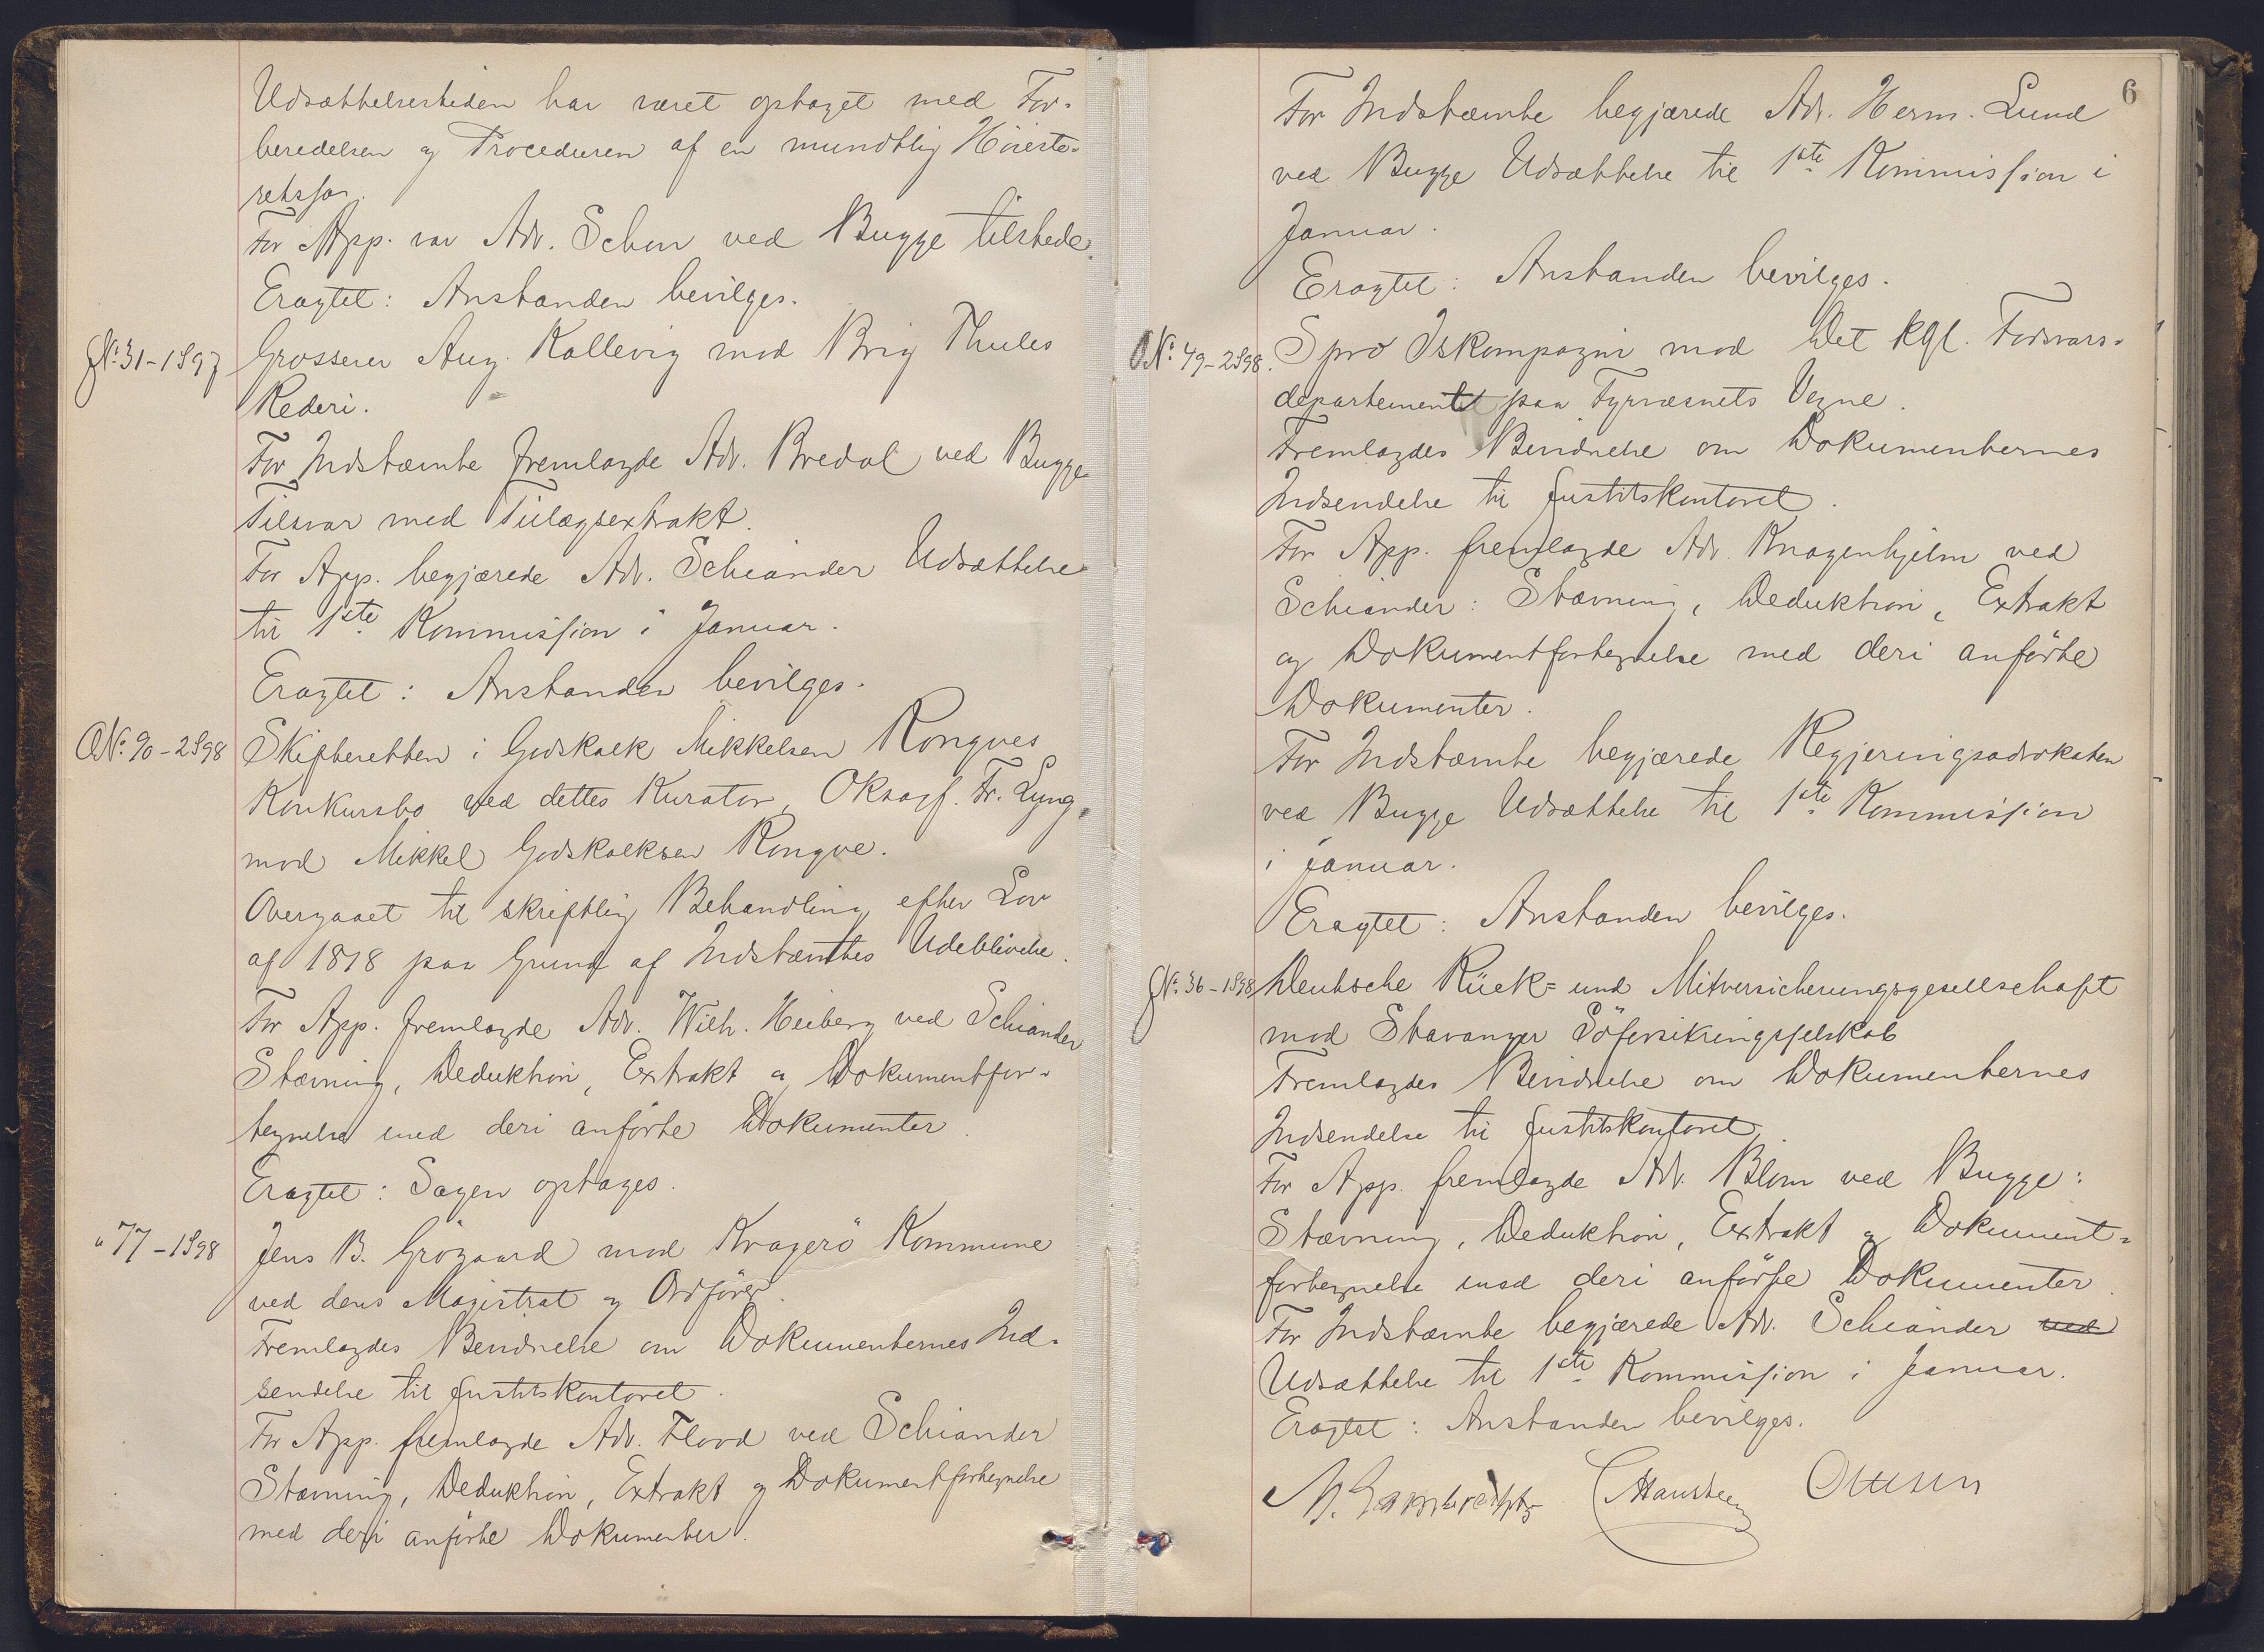 Udsættelsestiden har været optaget med For-
beredelsen og Proceduren af en mundtlig Höieste-
retssag.
For App. var Adv. Schou ved Bugge tilstede.
Eragtet: Anstanden bevilges.
No. 31-1897
Grosserer Aug. Kallevig mod Brig Thules
Rederi.
For Indstæmte fremlagde Adv. Bredal ved Bugge
Tilsvar med Tillægsextrakt.
For App. begjærede Adv. Schiander Udsættelse
til 1ste Kommission i Januar.
Eragtet: Anstanden bevilges.
No. 90-2898
Skifteretten i Godskalk Mikkelsen Rongves
Konkursbo ved dettes Kurator, Oksagf. Fr. Lyng,
mod Mikkel Godskalksen Rongve.
Overgaaet til skriftlig Behandling efter Lov
af 1818 paa Grund af Indstæmtes Udeblivelse.
For App. fremlagde Adv. Wilh. Heiberg ved Schiander
Stævning, Deduktion, Extrakt og Dokumentfor-
tegnelse med deri anförte Dokumenter.
Eragtet: Sagen optages.
" 77-1898
Jens B. Grögaard mod Kragerö Kommune
ved dens Magistrat og Ordförer.
Fremlagdes Bevidnelse om Dokumenternes Ind-
sendelse til Justitskontoret.
For App. fremlagde Adv. Flood ved Schiander
Stævning, Deduktion, Extrakt og Dokumentfortegnelse
med deri anförte Dokumenter.
6
For Indstæmte begjærede Adv. Herm. Lund
ved Bugge Udsættelse til 1ste Kommission i
Januar.
Eragtet: Anstanden bevilges.
No. 49-2898.
Spro Iskompagni mod Det kgl. Forsvars-
departement paa Fyrvæsnets Vegne.
Fremlagdes Bevidnelse om Dokumenternes
Indsendelse til Justitskontoret.
For App. fremlagde Adv. Knagenhjelm ved
Schiander: Stævning, Deduktion, Extrakt
og Dokumentfortegnelse med deri anförte
Dokumenter.
For Indstæmte begjærede Regjeringsadvokaten
ved Bugge Udsættelse til 1ste Kommission
i Januar.
Eragtet: Anstanden bevilges.
No. 36-1898
Deutsche Rück- und Mitversicherungsgesellschaft
mod Stavanger Söforsikringsselskab
Fremlagdes Bevidnelse om Dokumenternes
Indsendelse til Justitskontoret.
For App. fremlagde Adv. Blom ved Bugge:
Stævning, Deduktion, Extrakt og Dokument-
fortegnelse med deri anförte Dokumenter.
For Indstæmte begjærede Adv. Schiander ved
Udsættelse til 1ste Kommission i Januar.
Eragtet: Anstanden bevilges.
M. Lambrechts Hansteen Ottesen